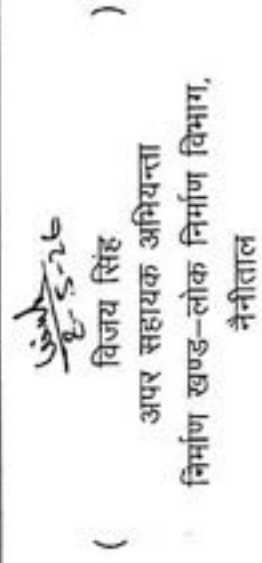 8-5-26
( विजय सिंह )
अपर सहायक अभियन्ता
निर्माण खण्ड-लोक निर्माण विभाग,
नैनीताल